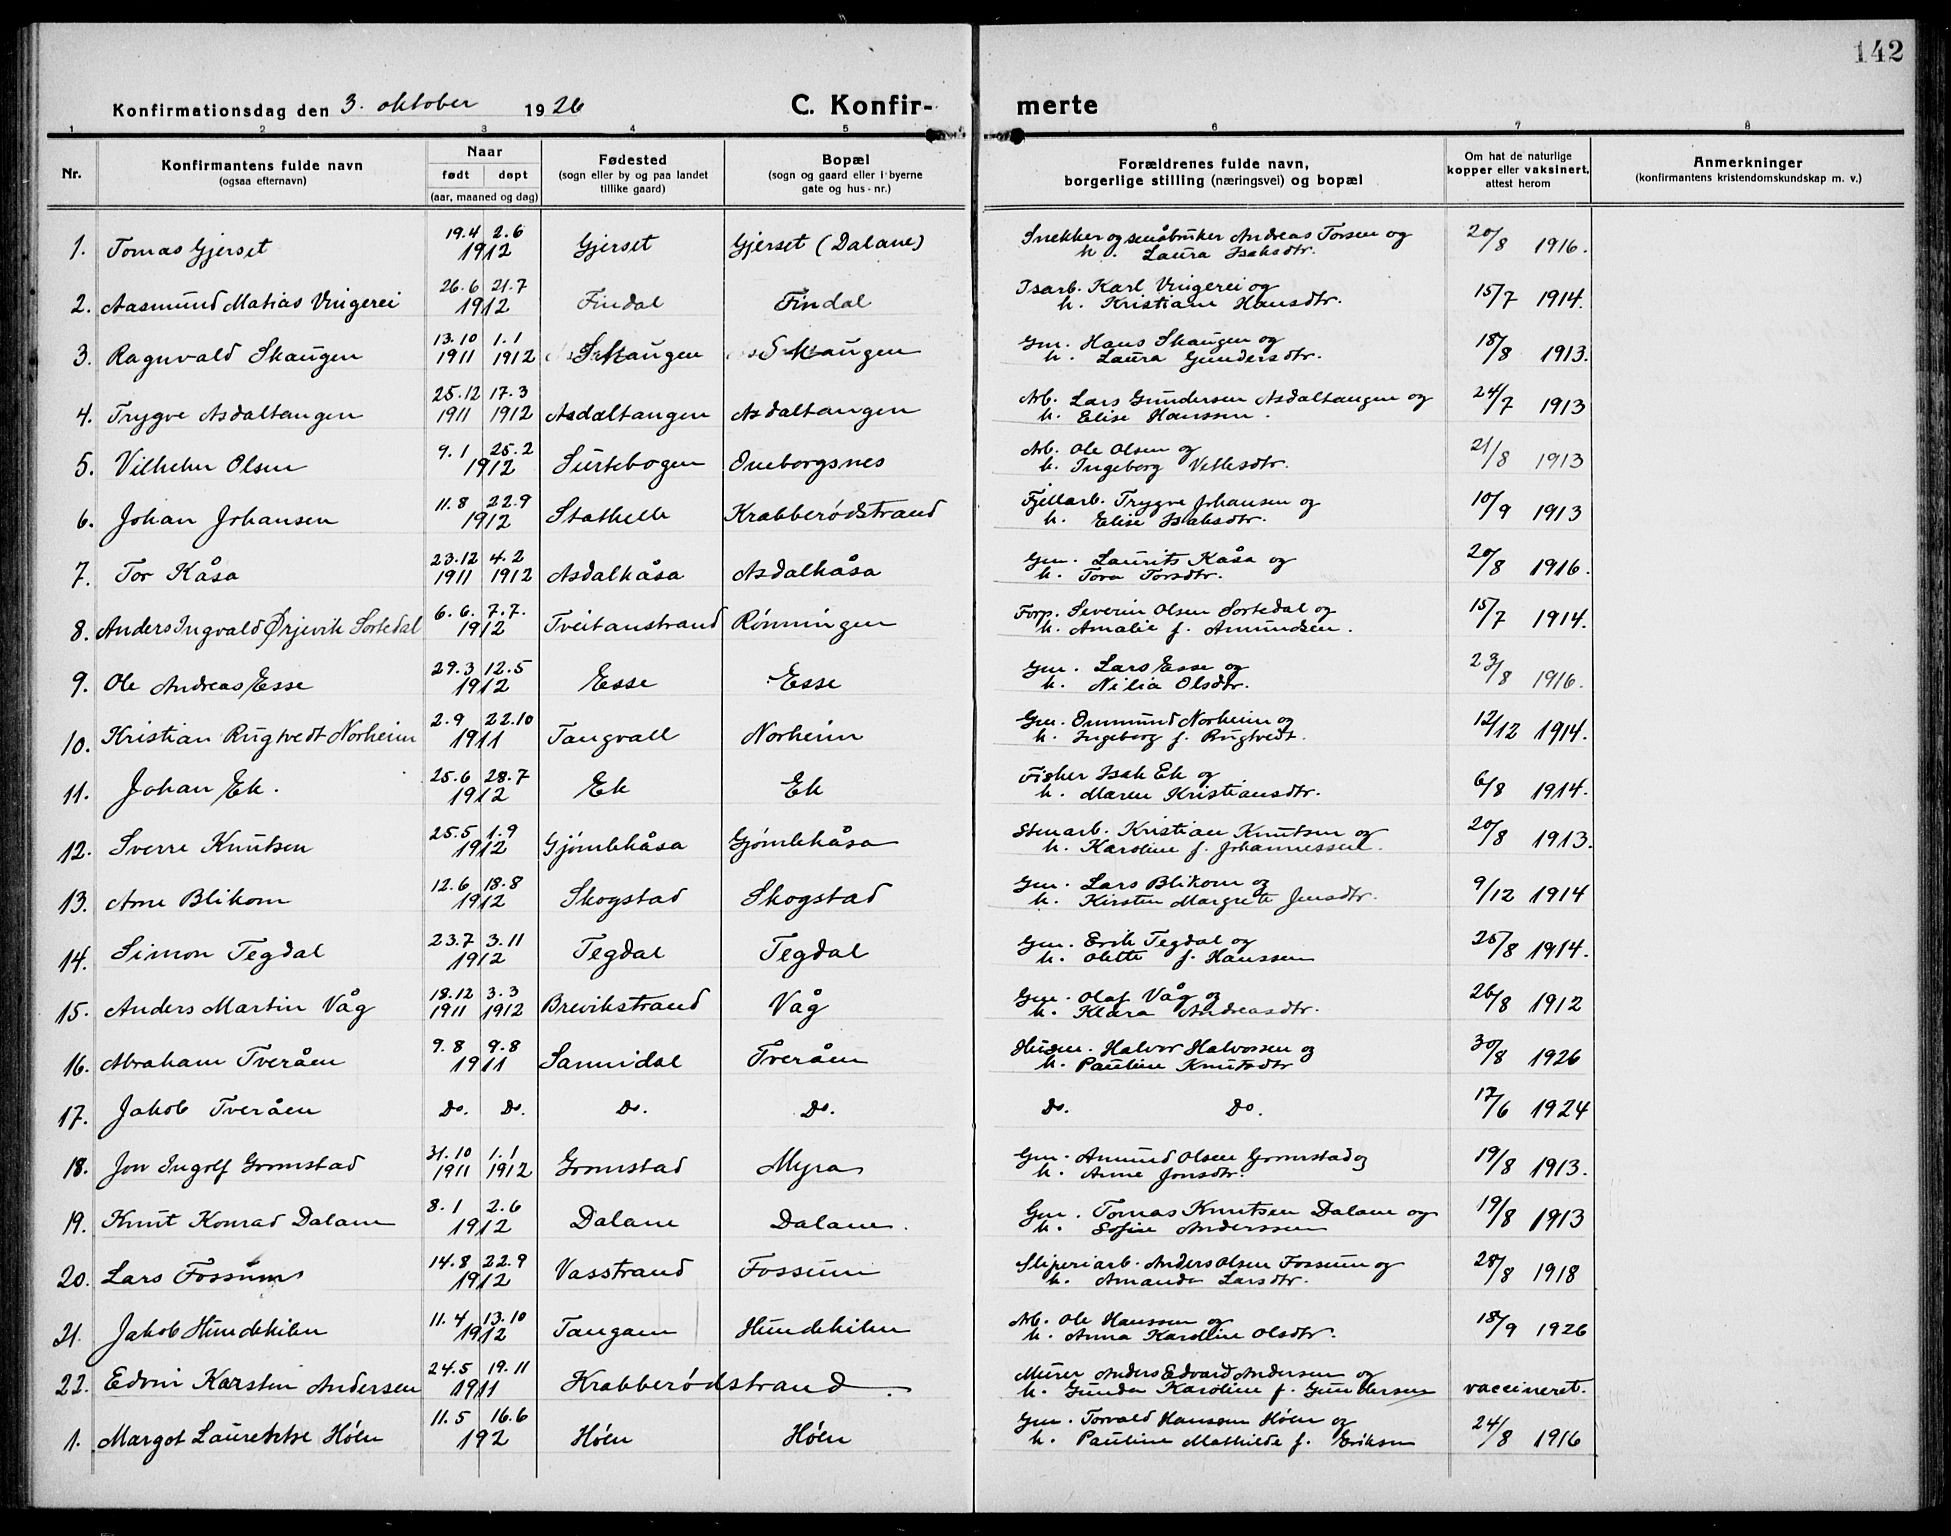 142
Konfirmationsdag den 3. oktober 1926 C. Konfir- merte
1 2 3 4 5 6 7 8
Nr. Konfirmantens fulde navn (ogsaa efternavn) Naar født døpt (aar, maaned og dag) Fødested (sogn eller by og paa landet tillike gaard) Bopæl (sogn og gaard eller i byerne gate og hus-nr.) Forældrenes fulde navn, borgerlige stilling (næringsvei) og bopæl Om hat de naturlige kopper eller vaksinert, attest herom Anmerkninger (konfirmantens kristendomskundskap m. v.)
1. Tomas Gjerset 19.4 2.6 1912 Gjerset Gjerset (Dalane) Snekker og småbruker Andreas Torsen og h. Laura Isaksdtr. 20/8 1916.
2. Aasmund Matias Vingerei 26.6 21.7 1912 Findal Findal Isarb. Karl Vingerei og h. Kristiane Hansdtr. 15/7 1914.
3. Ragnvald Skaugen 13.10 1911 1.1 1912 Skaugen Skaugen Gm. Hans Skaugen og h. Laura Gundersdtr. 18/8 1913.
4. Trygve Asdaltangen 25.12 1911 17.3 1912 Asdaltangen Asdaltangen Arb. Lars Gundersen Asdaltangen og h. Elise Hanssen. 24/7 1913
5. Vilhelm Olsen 9.1 25.2 1912 Surtebogen Oneborgsnes Arb. Ole Olsen og h. Ingeborg Vetlesdtr. 21/8 1913
6. Johan Johansen 11.8 22.9 1912 Stathelle Krabberødstrand Fjellarb. Trygve Johansen og h. Elise Isaksdtr. 10/9 1913
7. Tor Kåsa 23.12 1911 4.2 1912 Asdalkåsa Asdalkåsa Gm. Laurits Kåsa og h. Tora Torsdtr. 20/8 1916.
8. Anders Ingvald Ørjevik Sortedal 6.6. 7.7. 1912 Tveitanstrand Rønningen Forp. Severin Olsen Sortedal og h. Amalie f. Amundsen. 15/7 1914.
9. Ole Andreas Esse 29.3 12.5 1912 Esse Esse Gm. Lars Esse og h. Nilia Olsdtr. 23/8 1916.
10. Kristian Rugtvedt Norheim 2.9 22.10 1911 Tangvall Norheim Gm. Ommund Norheim og h. Ingeborg f. Rugtvedt. 12/12 1914.
11. Johan Ek. 25.6 28.7 1912 Ek Ek Fisker Isak Ek og h. Maren Kristiansdtr. 6/8 1914.
12. Sverre Knutsen 25.5 1.9 1912 Gjømlekåsa Gjømlekåsa Stenarb. Kristian Knutsen og h. Karoline f. Johannessen. 20/8 1913.
13. Arne Blikom 12.6 18.8 1912 Skogstad Skogstad Gm. Lars Blikom og h. Kirsten Margrete Jensdtr. 9/12 1914
14. Simon Tegdal 23.7 3.11 1912 Tegdal Tegdal Gm. Erik Tegdal og h. Olette f. Hanssen 25/8 1914.
15. Anders Martin Våg 18.12 1911 3.3 1912 Brevikstrand Våg Gm. Olaf Våg og h. Klara Andreasdtr. 26/8 1912
16. Abraham Tveråen 9.8 9.8 1911 Sannidal Tveråen Husm. Halvor Halvorsen og h. Pauline Knutsdtr 30/8 1926
17. Jakob Tveråen Do. Do. Do. Do. Do. Do. 17/6 1924
18. Jon Ingolf Gromstad 31.10 1911 1.1 1912 Gromstad Myra Gm. Amund Olsen Gromstad og h. Anne Jonsdtr. 19/8 1913.
19. Knut Konrad Dalane 8.1 2.6 1912 Dalane Dalane. Gm. Tomas Knutsen Dalane og h. Sofie Anderssen 19/8 1913
20. Lars Fossum 14.8 22.9 1912 Vasstrand Fossum Sliperiarb. Anders Olsen Fossum og h. Amanda Larsdtr. 28/8 1918
21. Jakob Hundekilen 11.4 13.10 1912 Tangane Hundekilen Arb. Ole Hanssen og h. Anna Karoline Olsdtr. 18/9 1926
22. Edvin Karsten Andersen 24.5 19.11 1911 Krabberødstrand. Murer Anders Edvard Andersen og h. Gunda Karoline f. Gundersen vaccineret.
1. Margot Laurekke Höen 11.5 16.6 192 Höen Höen Gm. Torvald Hanssen Höen og h. Pauline Mathilde f. Eriksen 24/8 1916